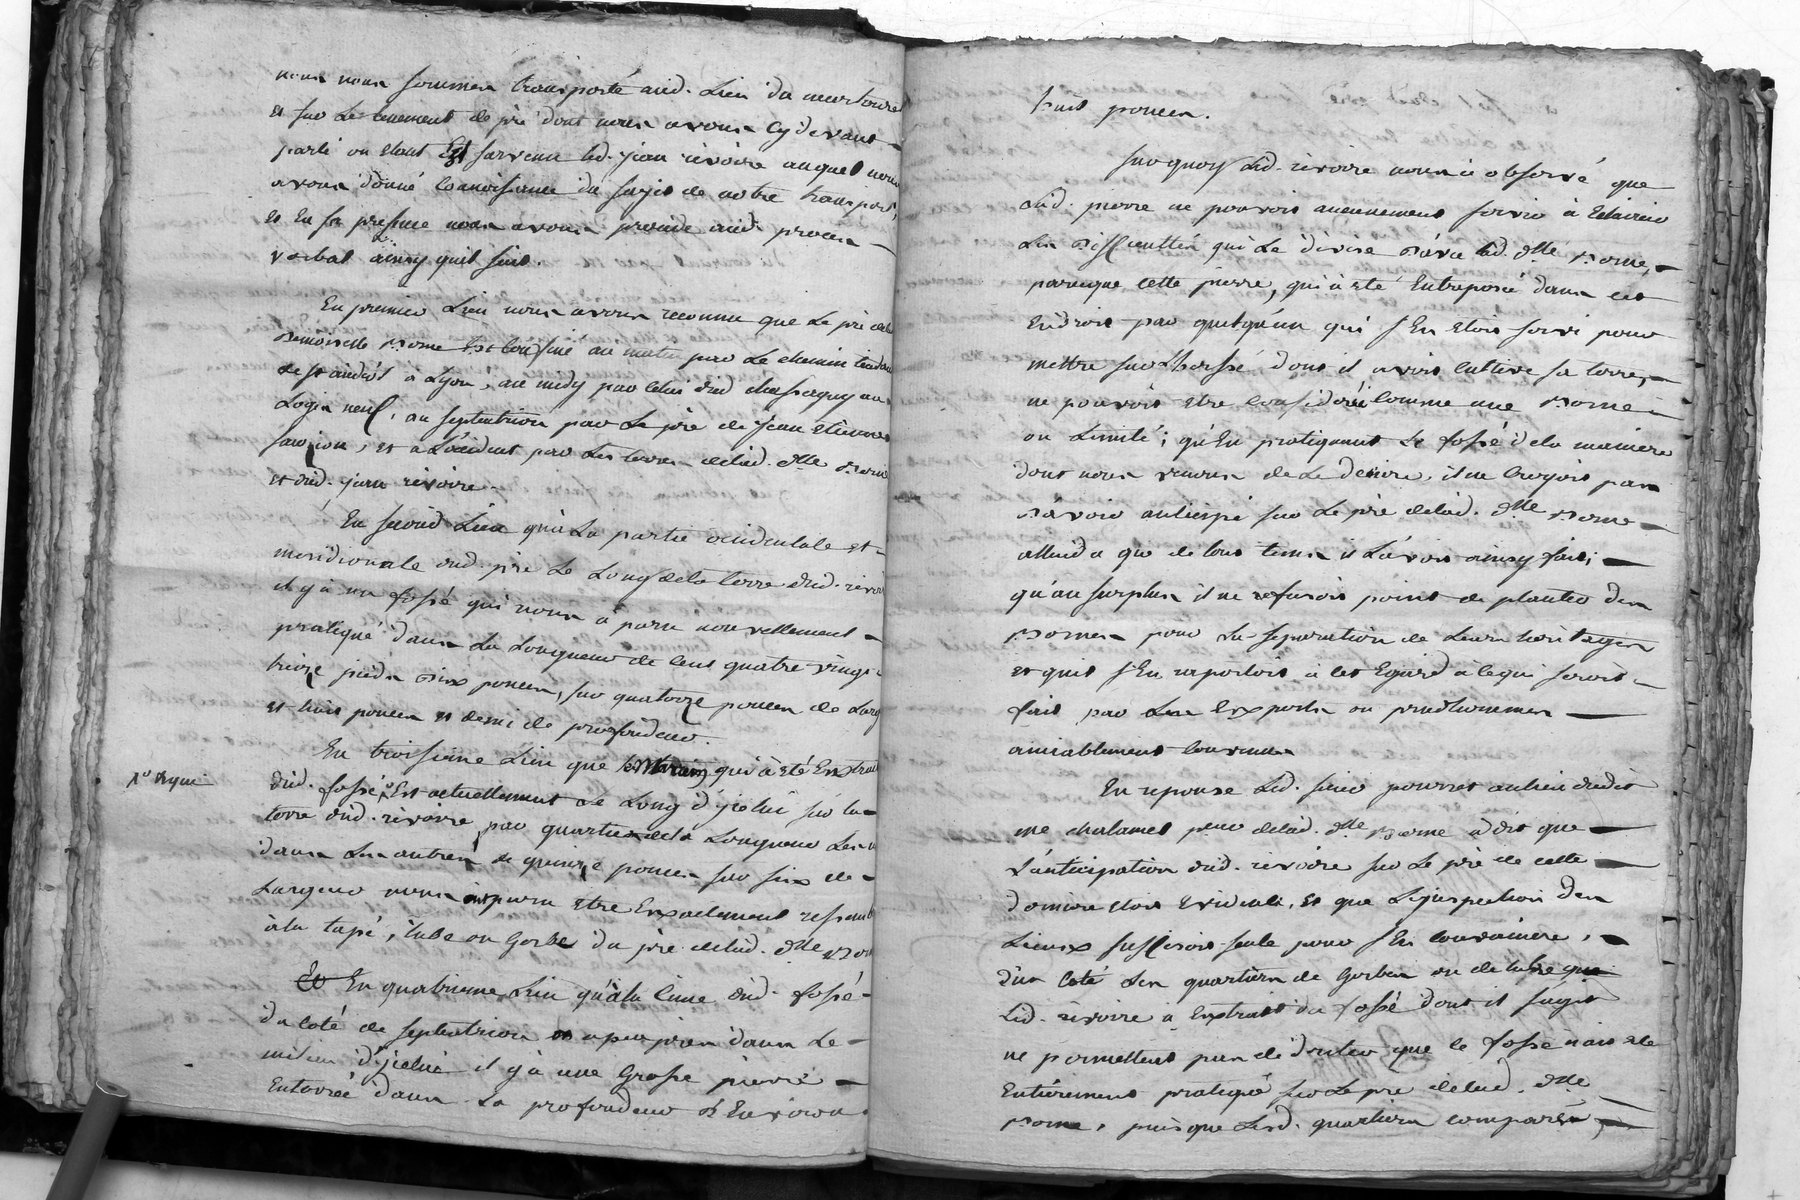 nous nous sommes transporté aud. Lieu du
et sur Le tenement de pré dont nous avons cy devant
parlé ou etant Est survenu Led. jean revoire auquel nous
avons donné Connoissance du sujet de notre transport,
et En sa presence nous avons procedé aud. procès
verbal ainsy quil suit.
En premier Lieu nous avons reconnu que Le pré de lad
demoiselle Borne Est Confiné au matin par Le chemin tendant
de st andéol à Lyon, au midy par Celui dud chassagny au
Logis neuf, au septentrion par Le pré de jean etienne
, et a L'occident par Les terres de lad. dlle Borne
et dud. jean revoire.
En second Lieu qu'à La partie occidentale et
meridionale dud. pré Le Long de la terre dud. revoire
il y à un fossé qui nous à paru nouvellement
pratiqué dans La Longueur de Cent quatre vingt
treize pieds six pouces, sur quatorze pouces de Large
et huit pouces et demi de profondeur.
En troisieme Lieu que le terrain qui à été Extrait
1° rayé
dud. fossé, Est actuellement Le Long d'jcelui sur la
terre dud. revoire par quartiers de La Longueur Les uns
dans Les autres de quinze pouces sur six de
Largeur nous à paru etre Exactement ressemblant
à la tapé, tube ou Gorbe du pré de lad. dlle Borne
Et En quatrieme Lieu qu'à la Cime dud. fossé
du coté de septentrion et a peu près dans Le
milieu d'jcelui il y à une Grosse pierre
Enterrée dans La profondeur d'Environ
huit pouces.
surquoy Led. revoire nous à observé que
Lad. pierre ne pouvoit aucunement servir à Eclaircir
Les difficultés qui Le divise d'avec Lad. dlle Borne,
parceque cette pierre, qui à eté Entreposée dans cet
Endroit par quelqu'un qui s'En etoit servi pour
mettre sur L'herse dont il avoit Cultivé sa terre,
ne pouvoit etre Considerée Comme une Borne
ou Limite; qu'En pratiquant Le fossé de la maniere
dont nous venons de Le decrire, il ne Croyoit pas
d'avoir anticipé sur Le pré de lad. dlle Borne
attendu que de tous tems il L'avoit ainsy fait;
qu'au surplus il ne refusoit point de planter des
Bornes pour La separation de Leurs heritages
et quil s'En raportoit à cet Egard à Ce qui seroit
fait par des Experts ou prudhommes
amiablement Convenus
En reponse Led. sieur pourret au lieu dudit
me chalamel pour delad. dlle Borne a dit que
L'anticipation dud. revoire sur Le pré de cette
derniere etoit Evidente, et que L'jnspection des
Lieux suffisoit seule pour s'En Convaincre,
d'un Coté Les quartiers de Gorbes ou de tube que
Led. revoire à Extrait du fossé dont il s'agit
ne permettent pas de douter que Le fossé n'ait eté
Entierement pratiqué sur Le pré de lad. dlle
Borne, puisque Lesd. quartiers comparés,